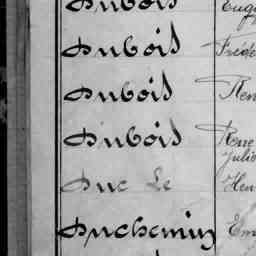 Dubois
Dubois Fréde
Dubois
Dubois
Julie
Duc Le Hen
Duchemin Em